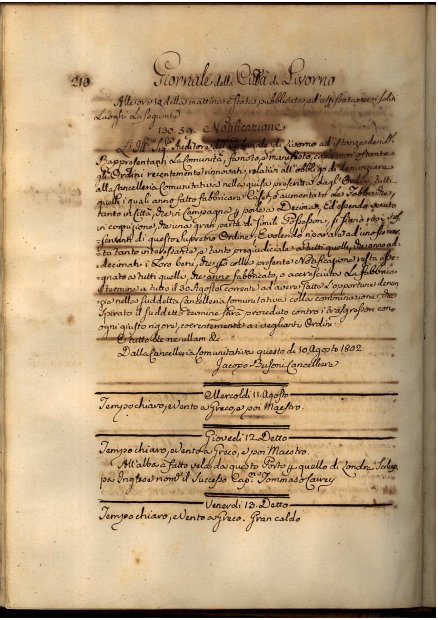 210 Giornale della Città di Livorno
Alle ore 12 della mattina è stata pubblicata, ed affissata nei soliti
Luoghi La seguente
130. 59. Notificazione
Gl' Ill. Sig. Auditore del Tribunale di Livorno ad istanza dei
Rappresentanti La Comunità, fa noto, e manifesto, come non ostante
gli Ordini recentemente rinnovati, relativi all'obbligo di denunziare
alla Cancelleria Comunitativa nelle guise prescritte dagli Ordini, tutti
quelli, i quali anno fabbricare Case, o aumentato da Fabbriche,
tanto in Città, che in Campagna, e poste a Decima. Ed essendo venuto
in cognizione, che una gran parte di simili Possessori, si siano resi
di questi supremi Ordini; E volendo riparare ad uno
tanto interessante, e tanto pregiudiciale a tutti quelli, che anno ad
decimati i Loro beni, che però colla presente Notificazione resta asse-
gnato a tutti quelli, che anno fabbricato, o accresciuto La Fabbrica
il termine a tutto il 30 Agosto corrente ad avere fatto L'opportune denun-
zie nella suddetta Cancelleria Comunitativa colla comminazione, che
spirato il suddetto termine sarà proceduto contro i trasgressori con
ogni giusto rigore, coerentemente ai veglianti Ordini.
E tutto &c nellam &c
Dalla Cancelleria Comunitativa questo dì 10 Agosto 1802
Jacopo Busoni Cancelliere
Mercoldì 11. Agosto
Tempo chiaro, e Vento a Greco, e poi Maestro.
Giovedì 12. Detto
Tempo chiaro, e Vento a Greco, e poi Maestro.
All'alba è fatto vela da questo Porto p quello di Londra Polac-
pa Inglese nom. il Successo Cap.no Tommaso
Venerdì 13. Detto
Tempo chiaro, e Vento a Greco. Gran caldo